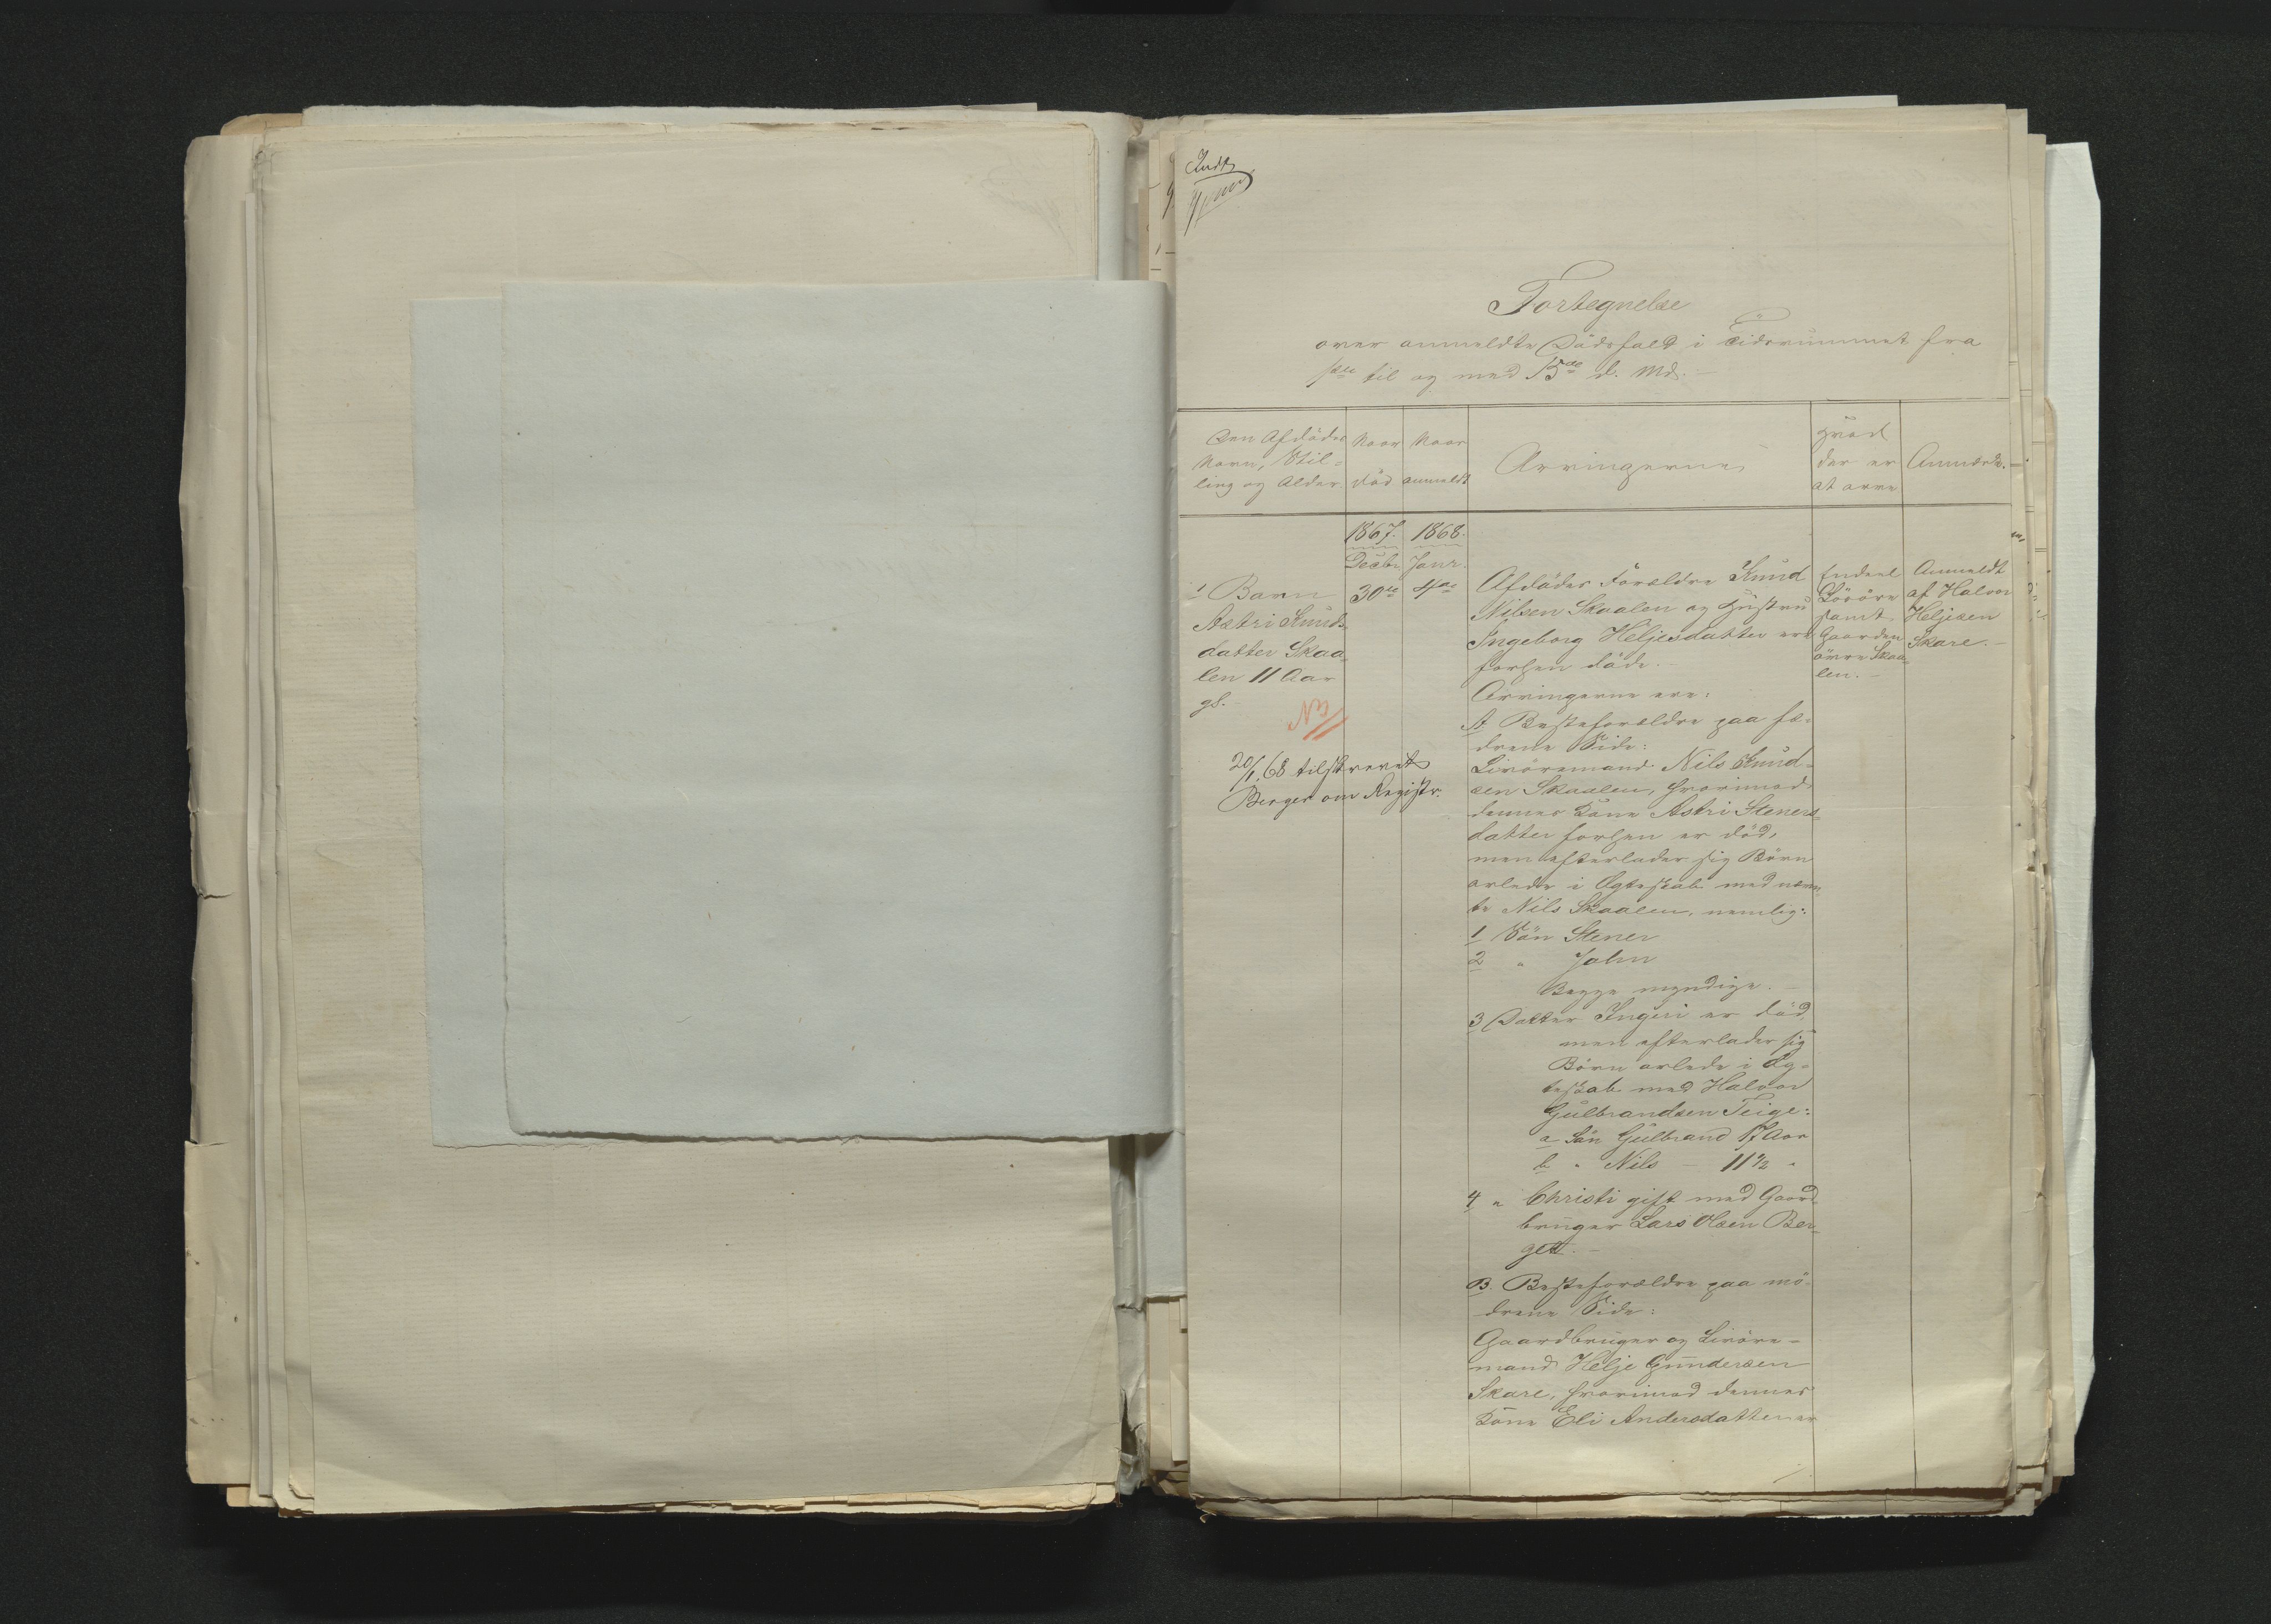 Indk
Fortegnelse
over anmeldte Dödsfald i Tidsrummet fra
1ste til og med 15de d. Md. –
Den Afdödes
Navn, Stil-
ling og Alder.
Naar
död
Naar
anmeldt
Arvingerne
Hvad
der er
at arve
Anmærkn.
1867.
Decbr.
30te
1868.
Janr.
4de
1 Barn
Astri Knuds-
datter Skaa-
len 11 Aar
gl.
20/1 68 tilskrevet
Berger om Registr.
Afdödes Forældre Knud
Nilsen Skaalen og Hustru
Ingeborg Heljesdatter ere
forhen döde. –
Arvingerne ere:
A Besteforældre paa fæ-
drene Side:
Livöremand Nils Knud-
sen Skaalen, hvorimod
dennes Kone Astri Steners-
datter forhen er död,
men efterlader sig Börn
avlede i Ægteskab med nævn-
te Nils Skaalen, nemlig:
1 Sön Stener
2 " John
Begge myndige. –
3 Datter Ingeri er död,
men efterlader sig
Börn avlede i Æg-
teskab med Halvor
Gulbrandsen Teige:
a Sön Gulbrand 17 Aar
b " Nils – 11½ "
4 " Christi gift med Gaard-
bruger Lars Olsen Ber-
get. –
B. Besteforældre paa mö-
drene Side:
Gaardbruger og Livöre-
mand Helje Gundersen
Skare, hvorimod dennes
Kone Eli Andersdatter er
Endeel
Lösöre
samt
Gaarden
övre Skaa-
len. –
Anmeldt
af Halvor
Heljesen
Skare. –